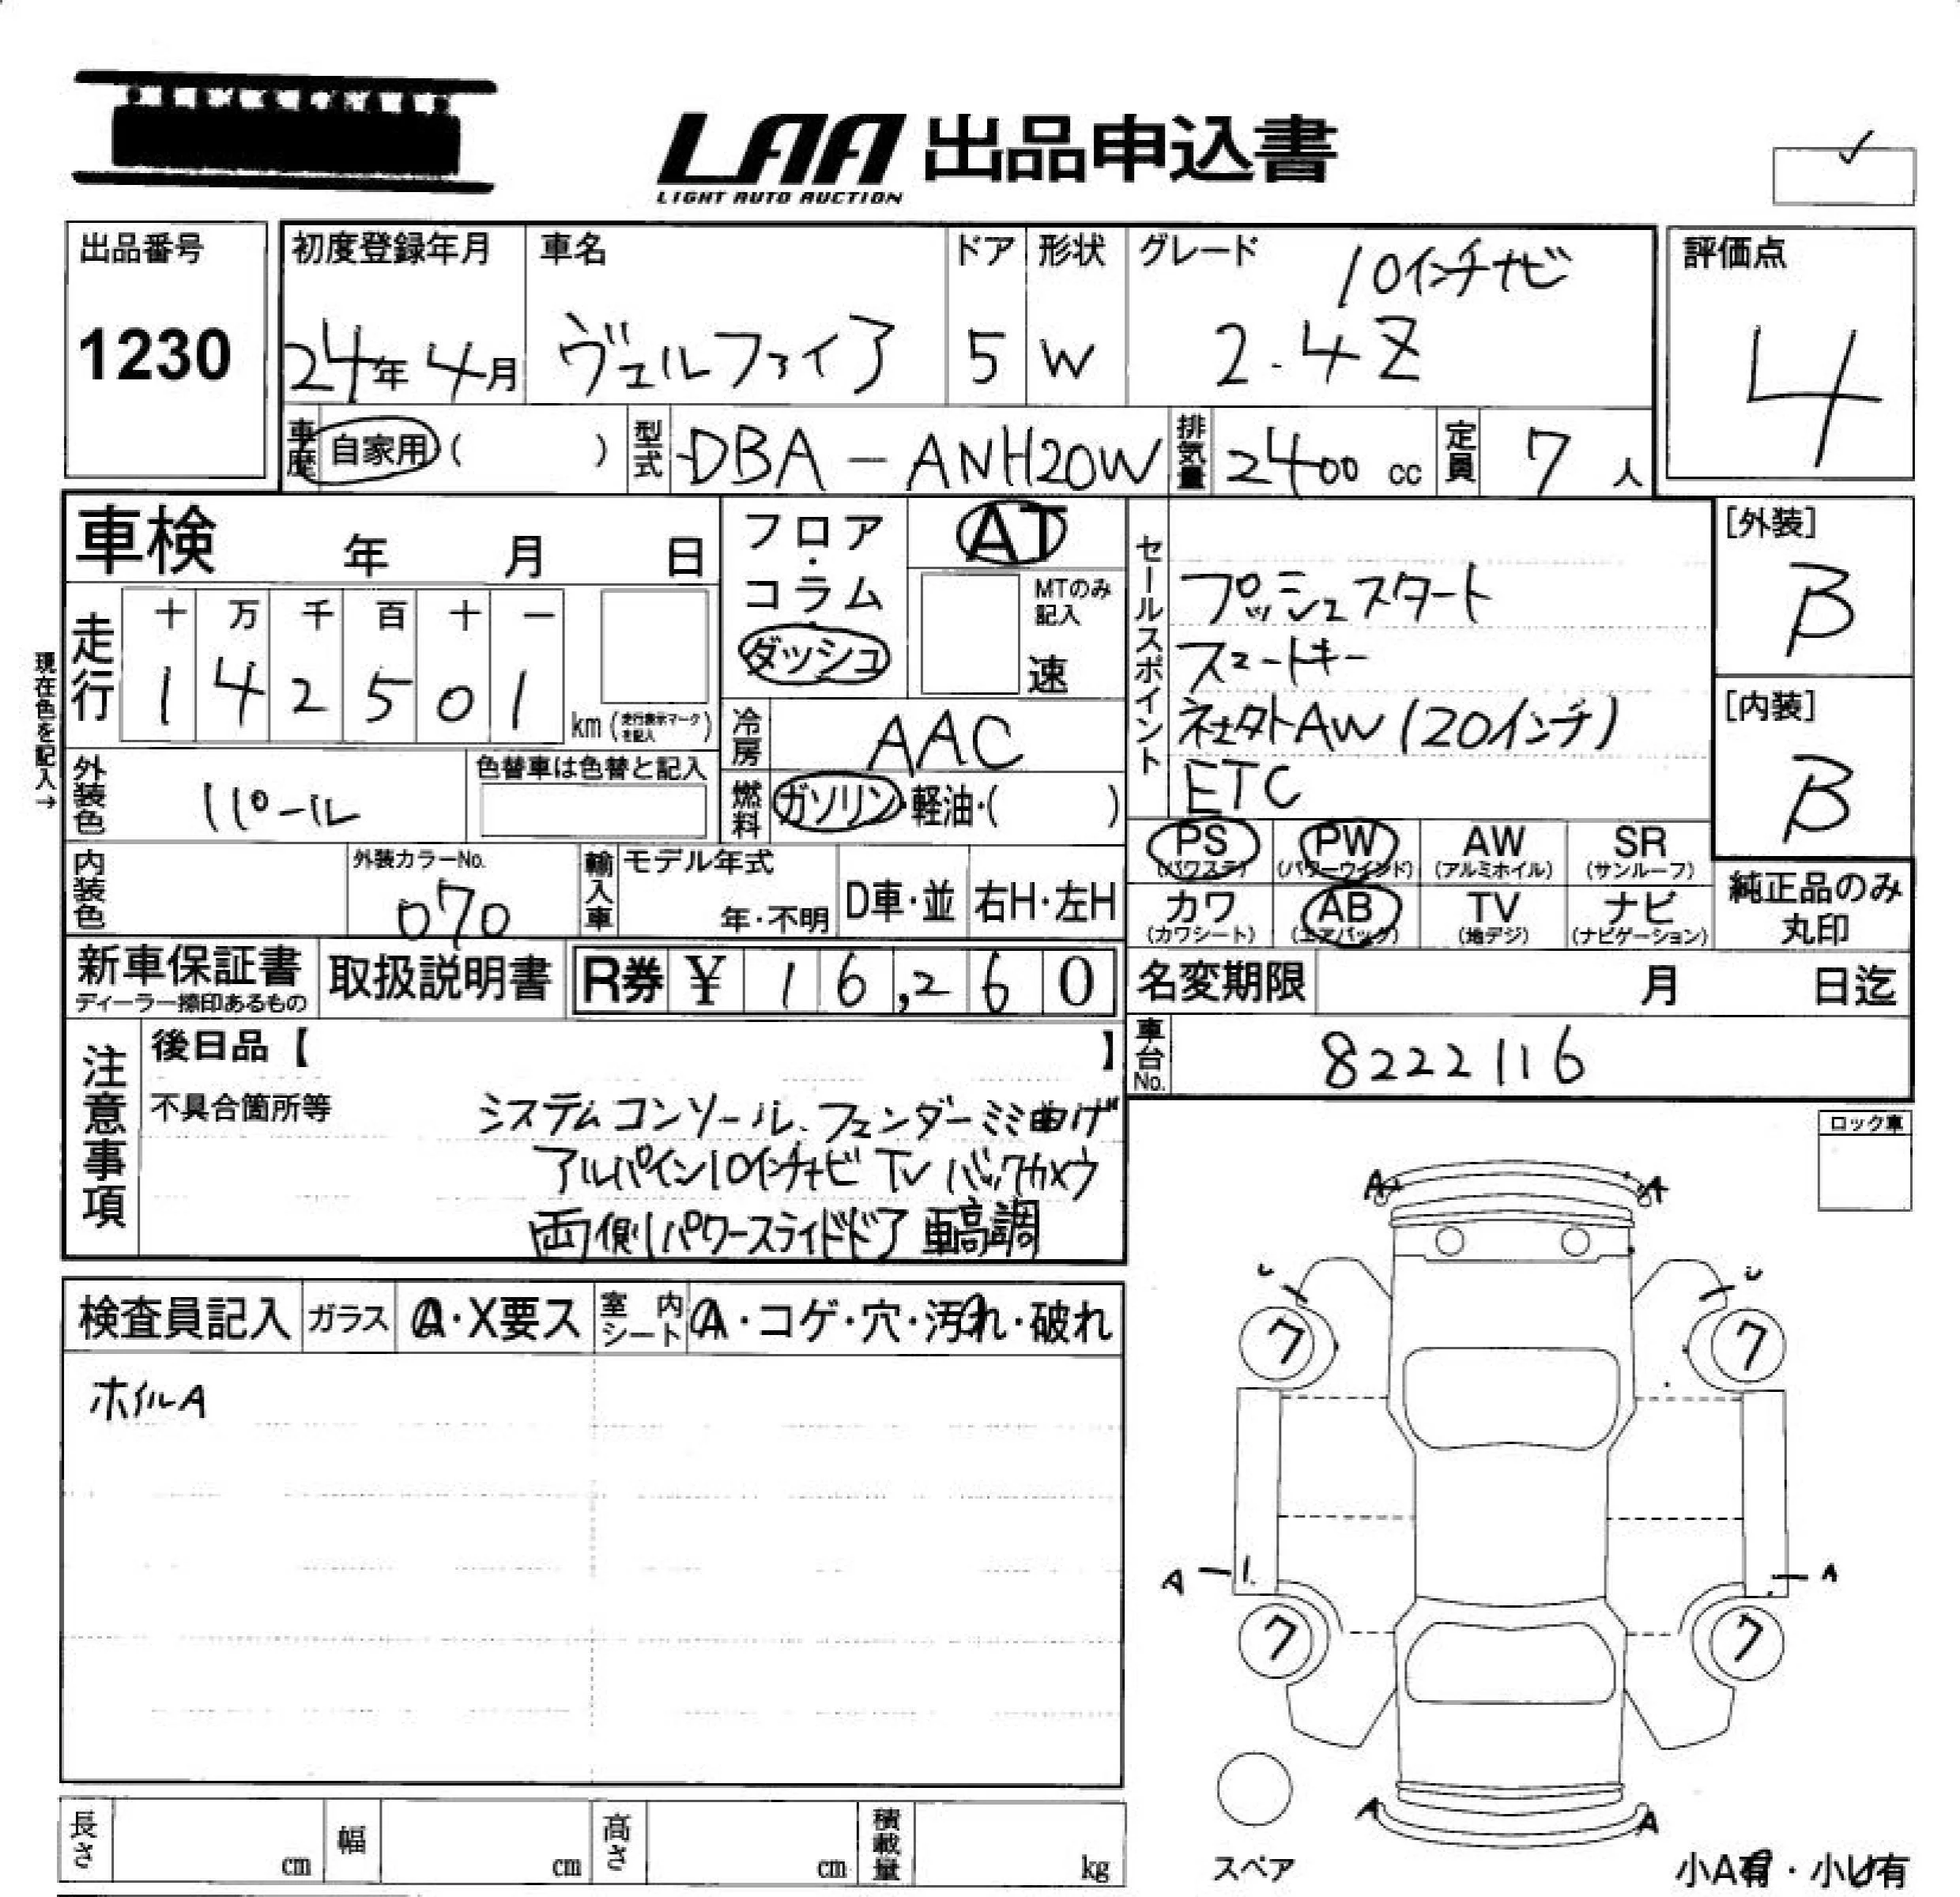 LAA 出品申込書
LIGHT AUTO AUCTION
出品番号
1230
初度登録年月
24年 4月
車名
ヴェルファイア
ドア
5
形状
W
グレード
10インチナビ
2.4Z
評価点
4
車歴
自家用( )
型式
DBA-ANH20W
排気量
2400 cc
定員
7人
車検 年 月 日
現在色を記入→
走行
十 万 千 百 十 一
1 4 2 5 0 1
km (走行表示マークを記入)
外装色
パール
色替車は色替と記入
内装色
外装カラーNo.
070
フロア・
コラム・
ダッシュ
AT
MTのみ
記入
速
冷房
AAC
燃料
ガソリン・軽油・( )
輸入車
モデル年式
年・不明
D車・並
右H・左H
新車保証書
ディーラー捺印あるもの
取扱説明書
R券 ¥ 16,260
セールスポイント
プッシュスタート
スマートキー
社外AW (20インチ)
ETC
PS
(パワステ)
PW
(パワーウインド)
AW
(アルミホイル)
SR
(サンルーフ)
カワ
(カワシート)
AB
(エアバック)
TV
(地デジ)
ナビ
(ナビゲーション)
[外装]
B
[内装]
B
純正品のみ
丸印
名変期限 月 日迄
車台No.
8222116
注意事項
後日品【 】
不具合箇所等
システムコンソール、フェンダーミミ曲げ
アルパイン10インチナビ TV バックカメラ
両側パワースライドドア 車高調
検査員記入
ガラス
A・X要ス
室内シート
A・コゲ・穴・汚れ・破れ
ホイルA
ロック車
A A
U U
7 7
A A
7 7
A A
スペア
小A有・小U有
長さ cm
幅 cm
高さ cm
積載量 kg